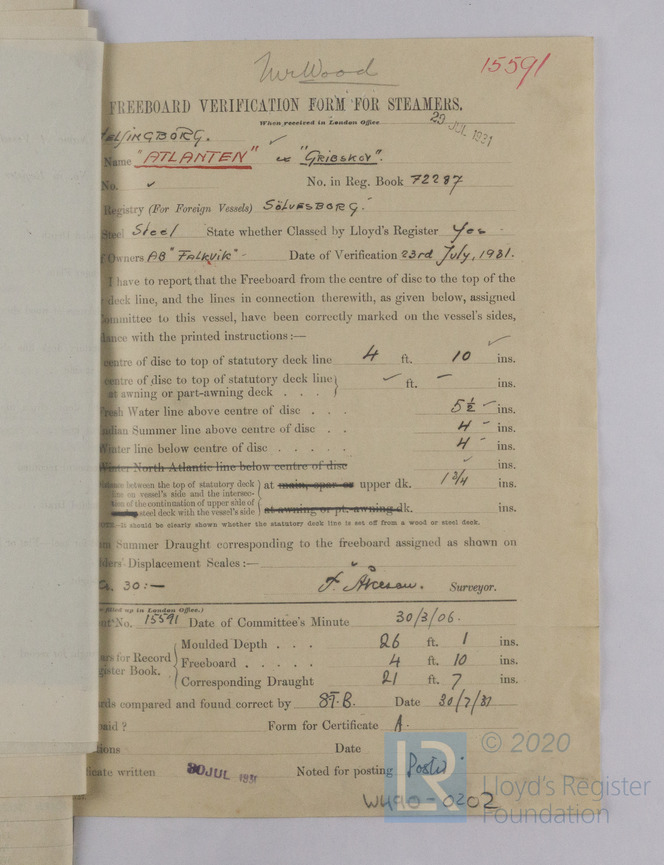 Mr Wood 15591
FREEBOARD VERIFICATION FORM FOR STEAMERS.
When received in London Office 29 JUL 1931
ELSINGBORG.
Name "ATLANTEN" ex "GRIBSKOV".
No. No. in Reg. Book 72287
Registry (For Foreign Vessels) SÖLVESBORG.
Steel Steel State whether Classed by Lloyd's Register Yes
Owners AB "FALKVIK" Date of Verification 23rd July, 1931.
I have to report that the Freeboard from the centre of disc to the top of the
deck line, and the lines in connection therewith, as given below, assigned
ommittee to this vessel, have been correctly marked on the vessel's sides,
dance with the printed instructions:—
centre of disc to top of statutory deck line 4 ft. 10 ins.
centre of disc to top of statutory deck line
at awning or part-awning deck . . . ft. — ins.
Fresh Water line above centre of disc . . . 5½ ins.
ndian Summer line above centre of disc . . 4 ins.
inter line below centre of disc . . . . . 4 ins.
Winter North Atlantic line below centre of disc ins.
between the top of statutory deck
line on vessel's side and the intersec-
tion of the continuation of upper side of
steel deck with the vessel's side
at main, spar or upper dk. 1 3/4 ins.
at awning or pt. awning dk. ins.
NOTE.—It should be clearly shown whether the statutory deck line is set off from a wood or steel deck.
um Summer Draught corresponding to the freeboard assigned as shown on
lders' Displacement Scales:—
30:— Surveyor.
filled up in London Office.)
No. 15591 Date of Committee's Minute 30/3/06.
ars for Record
gister Book.
Moulded Depth . . . 26 ft. 1 ins.
Freeboard . . . . . 4 ft. 10 ins.
Corresponding Draught 21 ft. 7 ins.
rds compared and found correct by Date 30/7/31
paid? Form for Certificate A.
tions Date
ficate written 30 JUL 1931 Noted for posting Posted
W490-0202
LR
© 2020
Lloyd's Register
Foundation